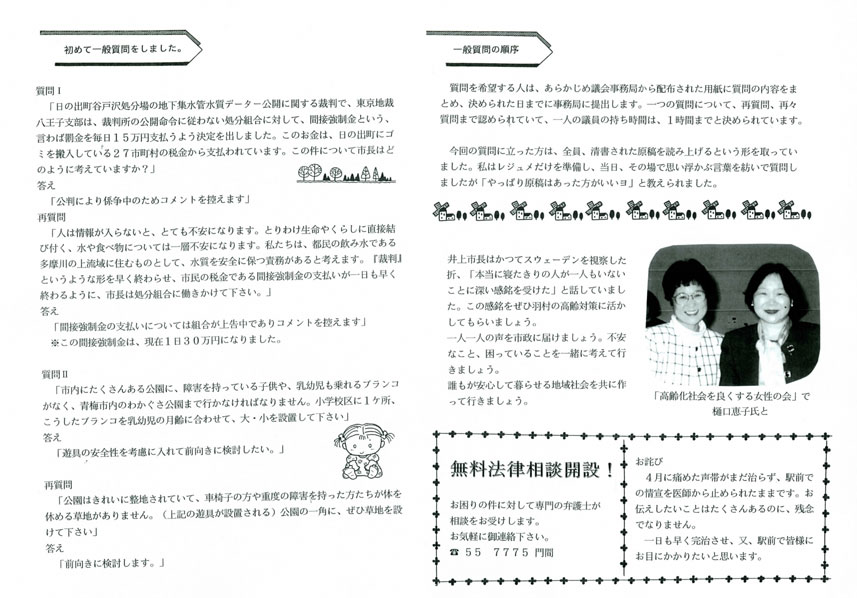 初めて一般質問をしました。
質問Ⅰ
「日の出町谷戸沢処分場の地下集水管水質データー公開に関する裁判で、東京地裁
八王子支部は、裁判所の公開命令に従わない処分組合に対して、間接強制金という、
言わば罰金を毎日１５万円支払うよう決定を出しました。このお金は、日の出町にゴ
ミを搬入している２７市町村の税金から支払われています。この件について市長はど
のように考えていますか？」
答え
「公判により係争中のためコメントを控えます」
再質問
「人は情報が入らないと、とても不安になります。とりわけ生命やくらしに直接結
び付く、水や食べ物については一層不安になります。私たちは、都民の飲み水である
多摩川の上流域に住むものとして、水質を安全に保つ責務があると考えます。『裁判』
というような形を早く終わらせ、市民の税金である間接強制金の支払いが一日も早く
終わるように、市長は処分組合に働きかけて下さい。」
答え
「間接強制金の支払いについては組合が上告中でありコメントを控えます」
※この間接強制金は、現在１日３０万円になりました。
質問Ⅱ
「市内にたくさんある公園に、障害を持っている子供や、乳幼児も乗れるブランコ
がなく、青梅市内のわかぐさ公園まで行かなければなりません。小学校区に１ケ所、
こうしたブランコを乳幼児の月齢に合わせて、大・小を設置して下さい」
答え
「遊具の安全性を考慮に入れて前向きに検討したい。」
再質問
「公園はきれいに整地されていて、車椅子の方や重度の障害を持った方たちが体を
休める草地がありません。（上記の遊具が設置される）公園の一角に、ぜひ草地を設
けて下さい」
答え
「前向きに検討します。」
一般質問の順序
質問を希望する人は、あらかじめ議会事務局から配布された用紙に質問の内容をま
とめ、決められた日までに事務局に提出します。一つの質問について、再質問、再々
質問まで認められていて、一人の議員の持ち時間は、１時間までと決められています。
今回の質問に立った方は、全員、清書された原稿を読み上げるという形を取ってい
ました。私はレジュメだけを準備し、当日、その場で思い浮かぶ言葉を紡いで質問し
ましたが「やっぱり原稿はあった方がいいヨ」と教えられました。
井上市長はかつてスウェーデンを視察した
折、「本当に寝たきりの人が一人もいない
ことに深い感銘を受けた」と話していまし
た。この感銘をぜひ羽村の高齢対策に活か
してもらいましょう。
一人一人の声を市政に届けましょう。不安
なこと、困っていることを一緒に考えて行
きましょう。
誰もが安心して暮らせる地域社会を共に作
って行きましょう。
「高齢化社会を良くする女性の会」で
樋口恵子氏と
無料法律相談開設！
お困りの件に対して専門の弁護士が
相談をお受けします。
お気軽に御連絡下さい。
☎ ５５ ７７７５ 門間
お詫び
４月に痛めた声帯がまだ治らず、駅前で
の情宣を医師から止められたままです。お
伝えしたいことはたくさんあるのに、残念
でなりません。
一日も早く完治させ、又、駅前で皆様に
お目にかかりたいと思います。